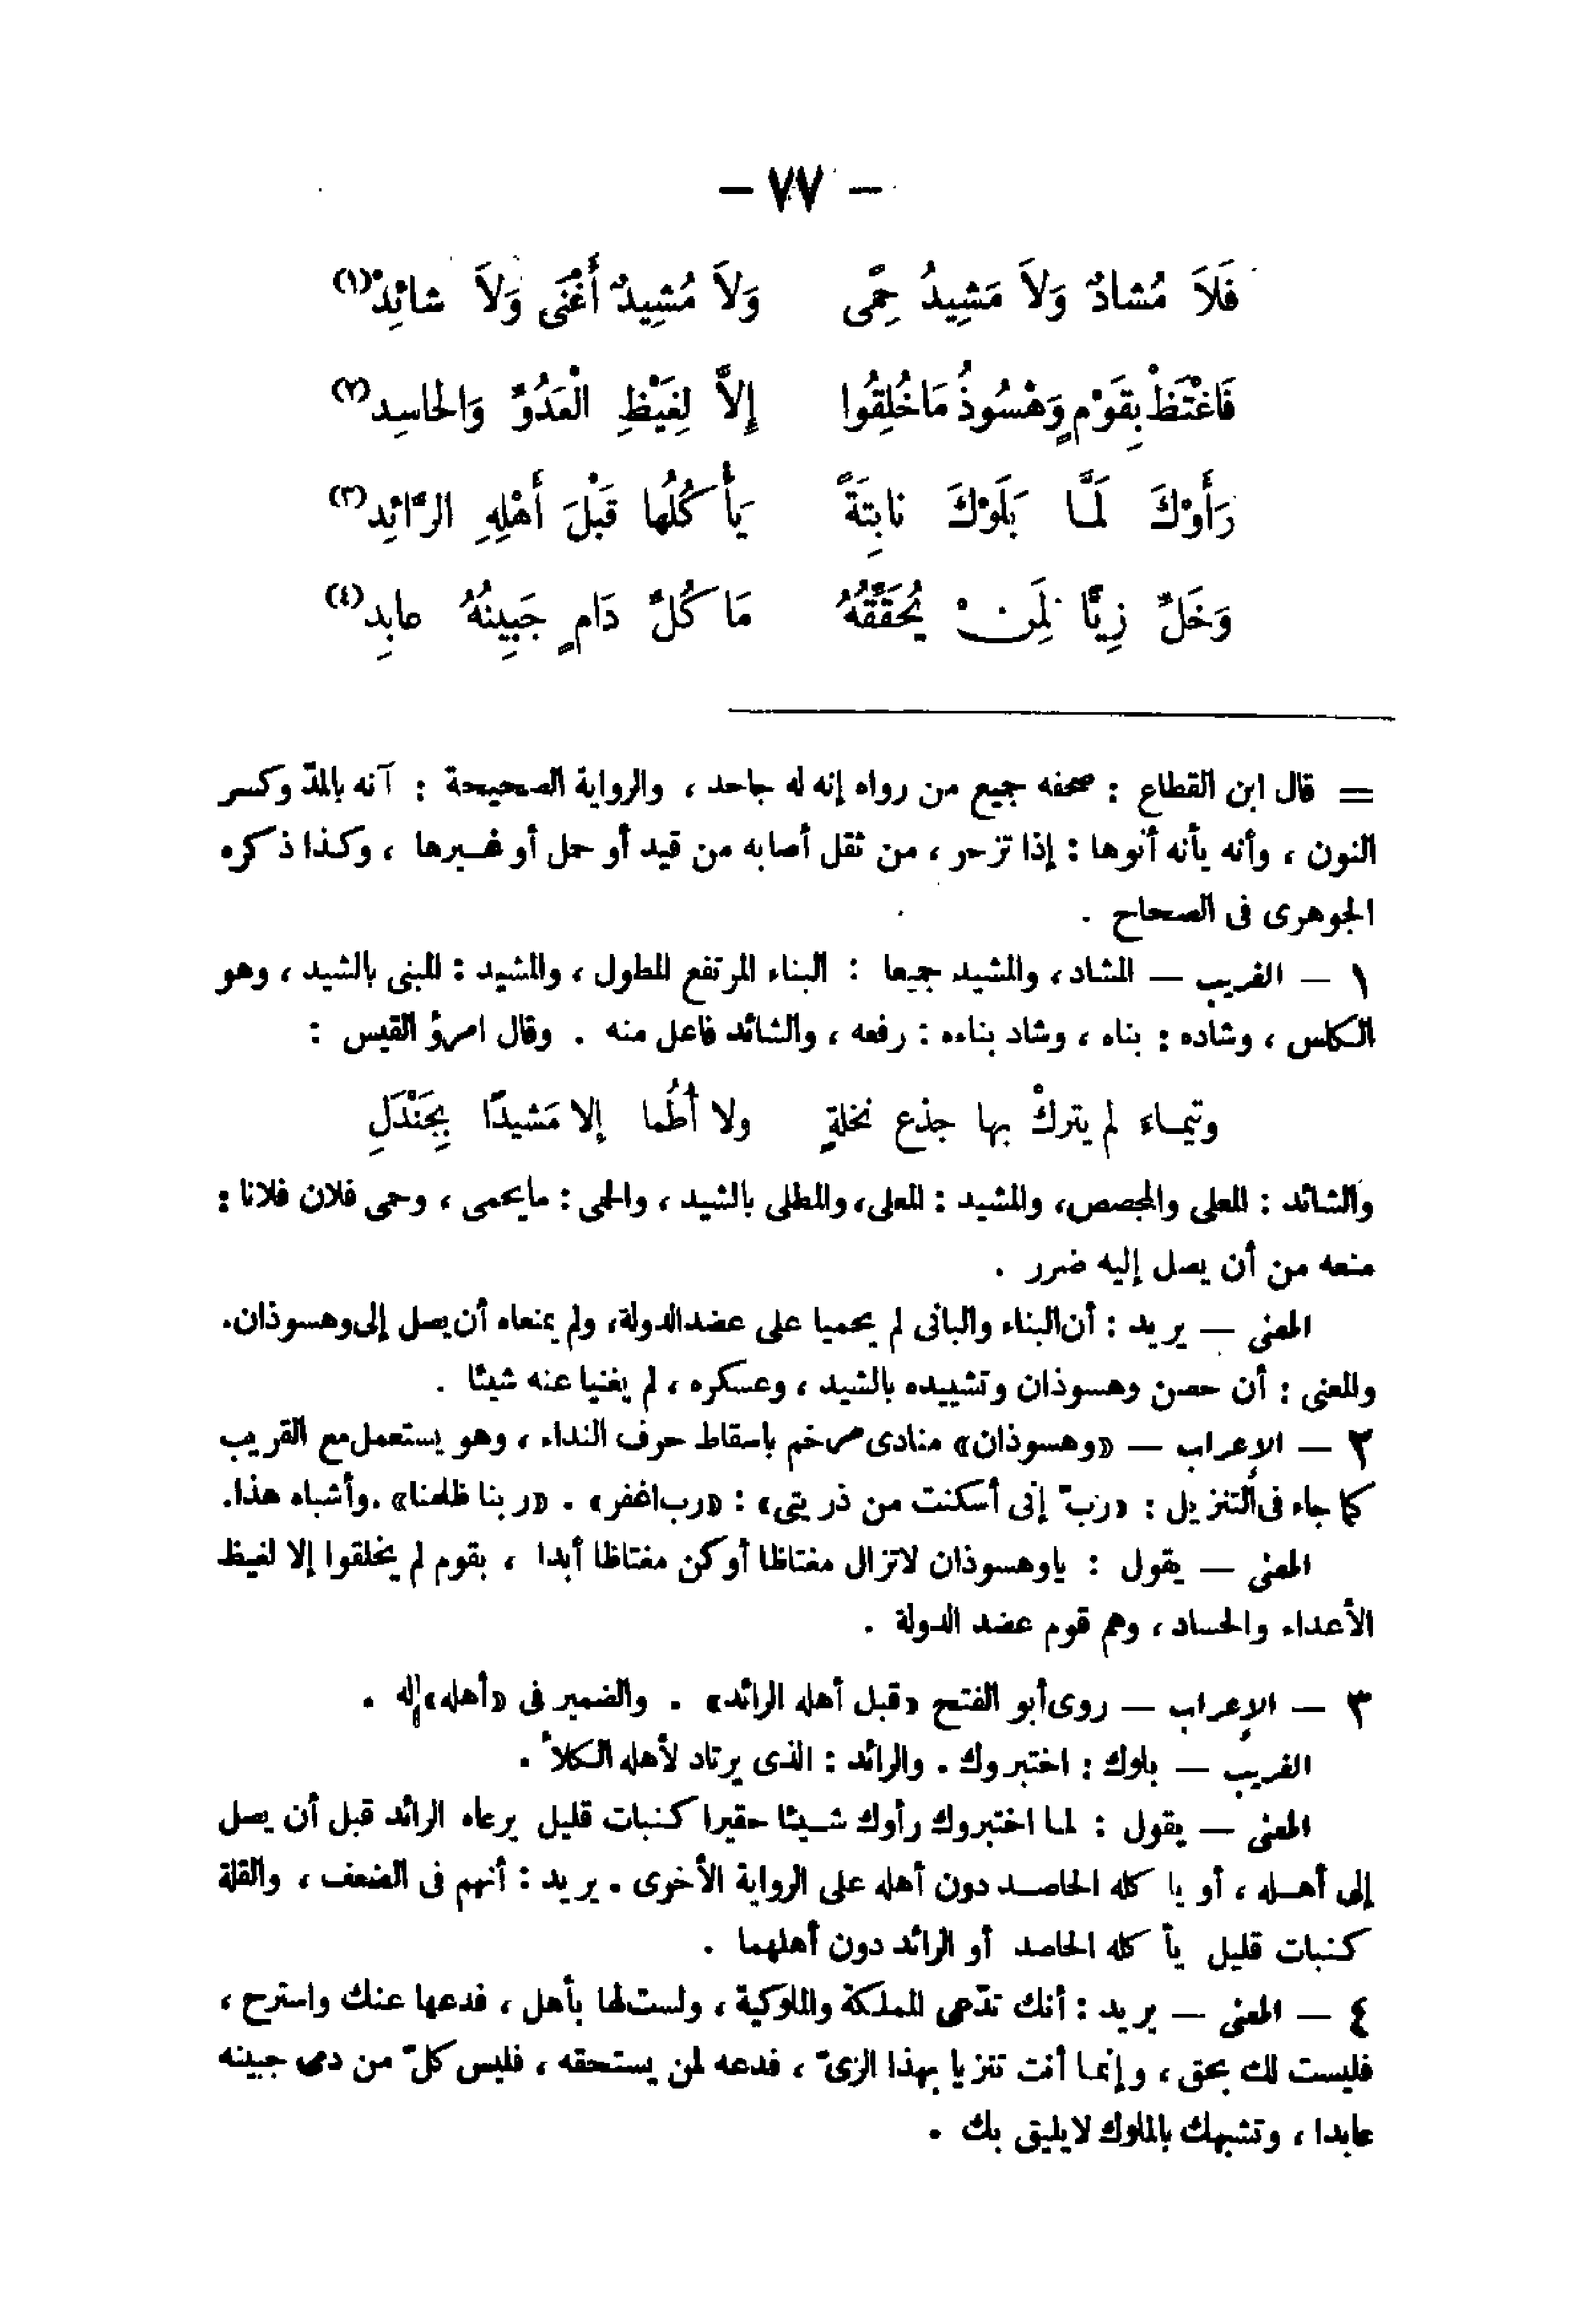 — ٧٧ —
فَلاَ مُشادٌ وَلاَ مَشِيدُ حِمًى وَلاَ مُشِيدٌ أَغْنَى وَلاَ شائِدْ (١)
فَاغْتَظْ بِقَوْمٍ وَهْسُوذُ مَاخُلِقُوا إِلاَّ لِغَيْظِ الْعَدُوِّ وَالحاسِد (٢)
رَأَوْكَ لَمَّا بَلَوْكَ نابِتَةً يَأْكُلُها قَبْلَ أَهْلِهِ الرَّائِد (٣)
وَخَلِّ زِيًّا لِمَنْ يُحَقِّقُهُ مَا كُلُّ دَامٍ جَبِينُهُ عابِد (٤)
= قال ابن القطاع : صحفه جميع من رواه إنه له جاحد ، والرواية الصحيحة : آنه بالمدّ وكسر
النون ، وأنه يأنه أنوها : إذا تزحر ، من ثقل أصابه من قيد أو حمل أو غيرها ، وكذا ذكره
الجوهرى فى الصحاح .
١ — الغريب — المشاد ، والمشيد جميعا : البناء المرتفع المطول ، والمشيد : المبنى بالشيد ، وهو
الكلس ، وشاده : بناه ، وشاد بناءه : رفعه ، والشائد فاعل منه . وقال امرؤ القيس :
وتيماءَ لم يتركْ بها جذع نخلةٍ ولا أُطُما إلا مَشيدًا بِجَنْدَلِ
والشائد : المعلى والمجصص، والمشيد : المعلى، والمطلى بالشيد ، والحمى : مايحمى ، وحمى فلان فلانا :
منعه من أن يصل إليه ضرر .
المعنى — يريد : أن البناء والبانى لم يحميا على عضد الدولة، ولم يمنعاه أن يصل إلى وهسوذان.
والمعنى : أن حصن وهسوذان وتشييده بالشيد ، وعسكره ، لم يغنيا عنه شيئا .
٢ — الإعراب — «وهسوذان» منادى مرخم باسقاط حرف النداء ، وهو يستعمل مع القريب
كما جاء فى التنزيل : «ربّ إنى أسكنت من ذريتى» : «رب اغفر» . «ربنا ظلمنا» . وأشباه هذا.
المعنى — يقول : ياوهسوذان لاتزال مغتاظا أو كن مغتاظا أبدا ، بقوم لم يخلقوا إلا لغيظ
الأعداء والحساد ، وهم قوم عضد الدولة .
٣ — الإعراب — روى أبو الفتح «قبل أهله الرائد» . والضمير فى «أهله» له .
الغريب — بلوك : اختبروك . والرائد : الذى يرتاد لأهله الكلأ .
المعنى — يقول : لما اختبروك رأوك شيئا حقيرا كنبات قليل يرعاه الرائد قبل أن يصل
إلى أهله ، أو يأكله الحاصد دون أهله على الرواية الأخرى . يريد : أنهم فى الضعف ، والقلة
كنبات قليل يأكله الحاصد أو الرائد دون أهلهما .
٤ — المعنى — يريد : أنك تدّعى المملكة والملوكية ، ولست لها بأهل ، فدعها عنك واسترح ،
فليست لك بحق ، وإنما أنت تتزيا بهذا الزىّ ، فدعه لمن يستحقه ، فليس كلّ من دمى جبينه
عابدا ، وتشبهك بالملوك لايليق بك .